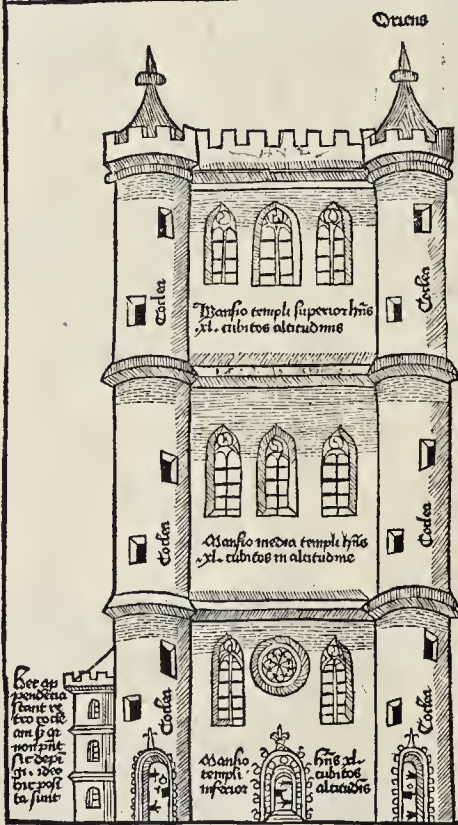 Oriens
Coclea
Coclea
Coclea
Coclea
Mansio templi superior hñs
.xl. cubitos altitudinis
Coclea
Coclea
Mansio media templi hñs
.xl. cubitos in altitudine
Coclea
Coclea
Hec ap
pendicia
stant re
tro cocle
am sꝫ qꝛ
non pñt
sic depi
gi. ideo
hic posi
ta sunt
Mansio
templi
inferior
hñs xl.
cubitos
altitudĩs